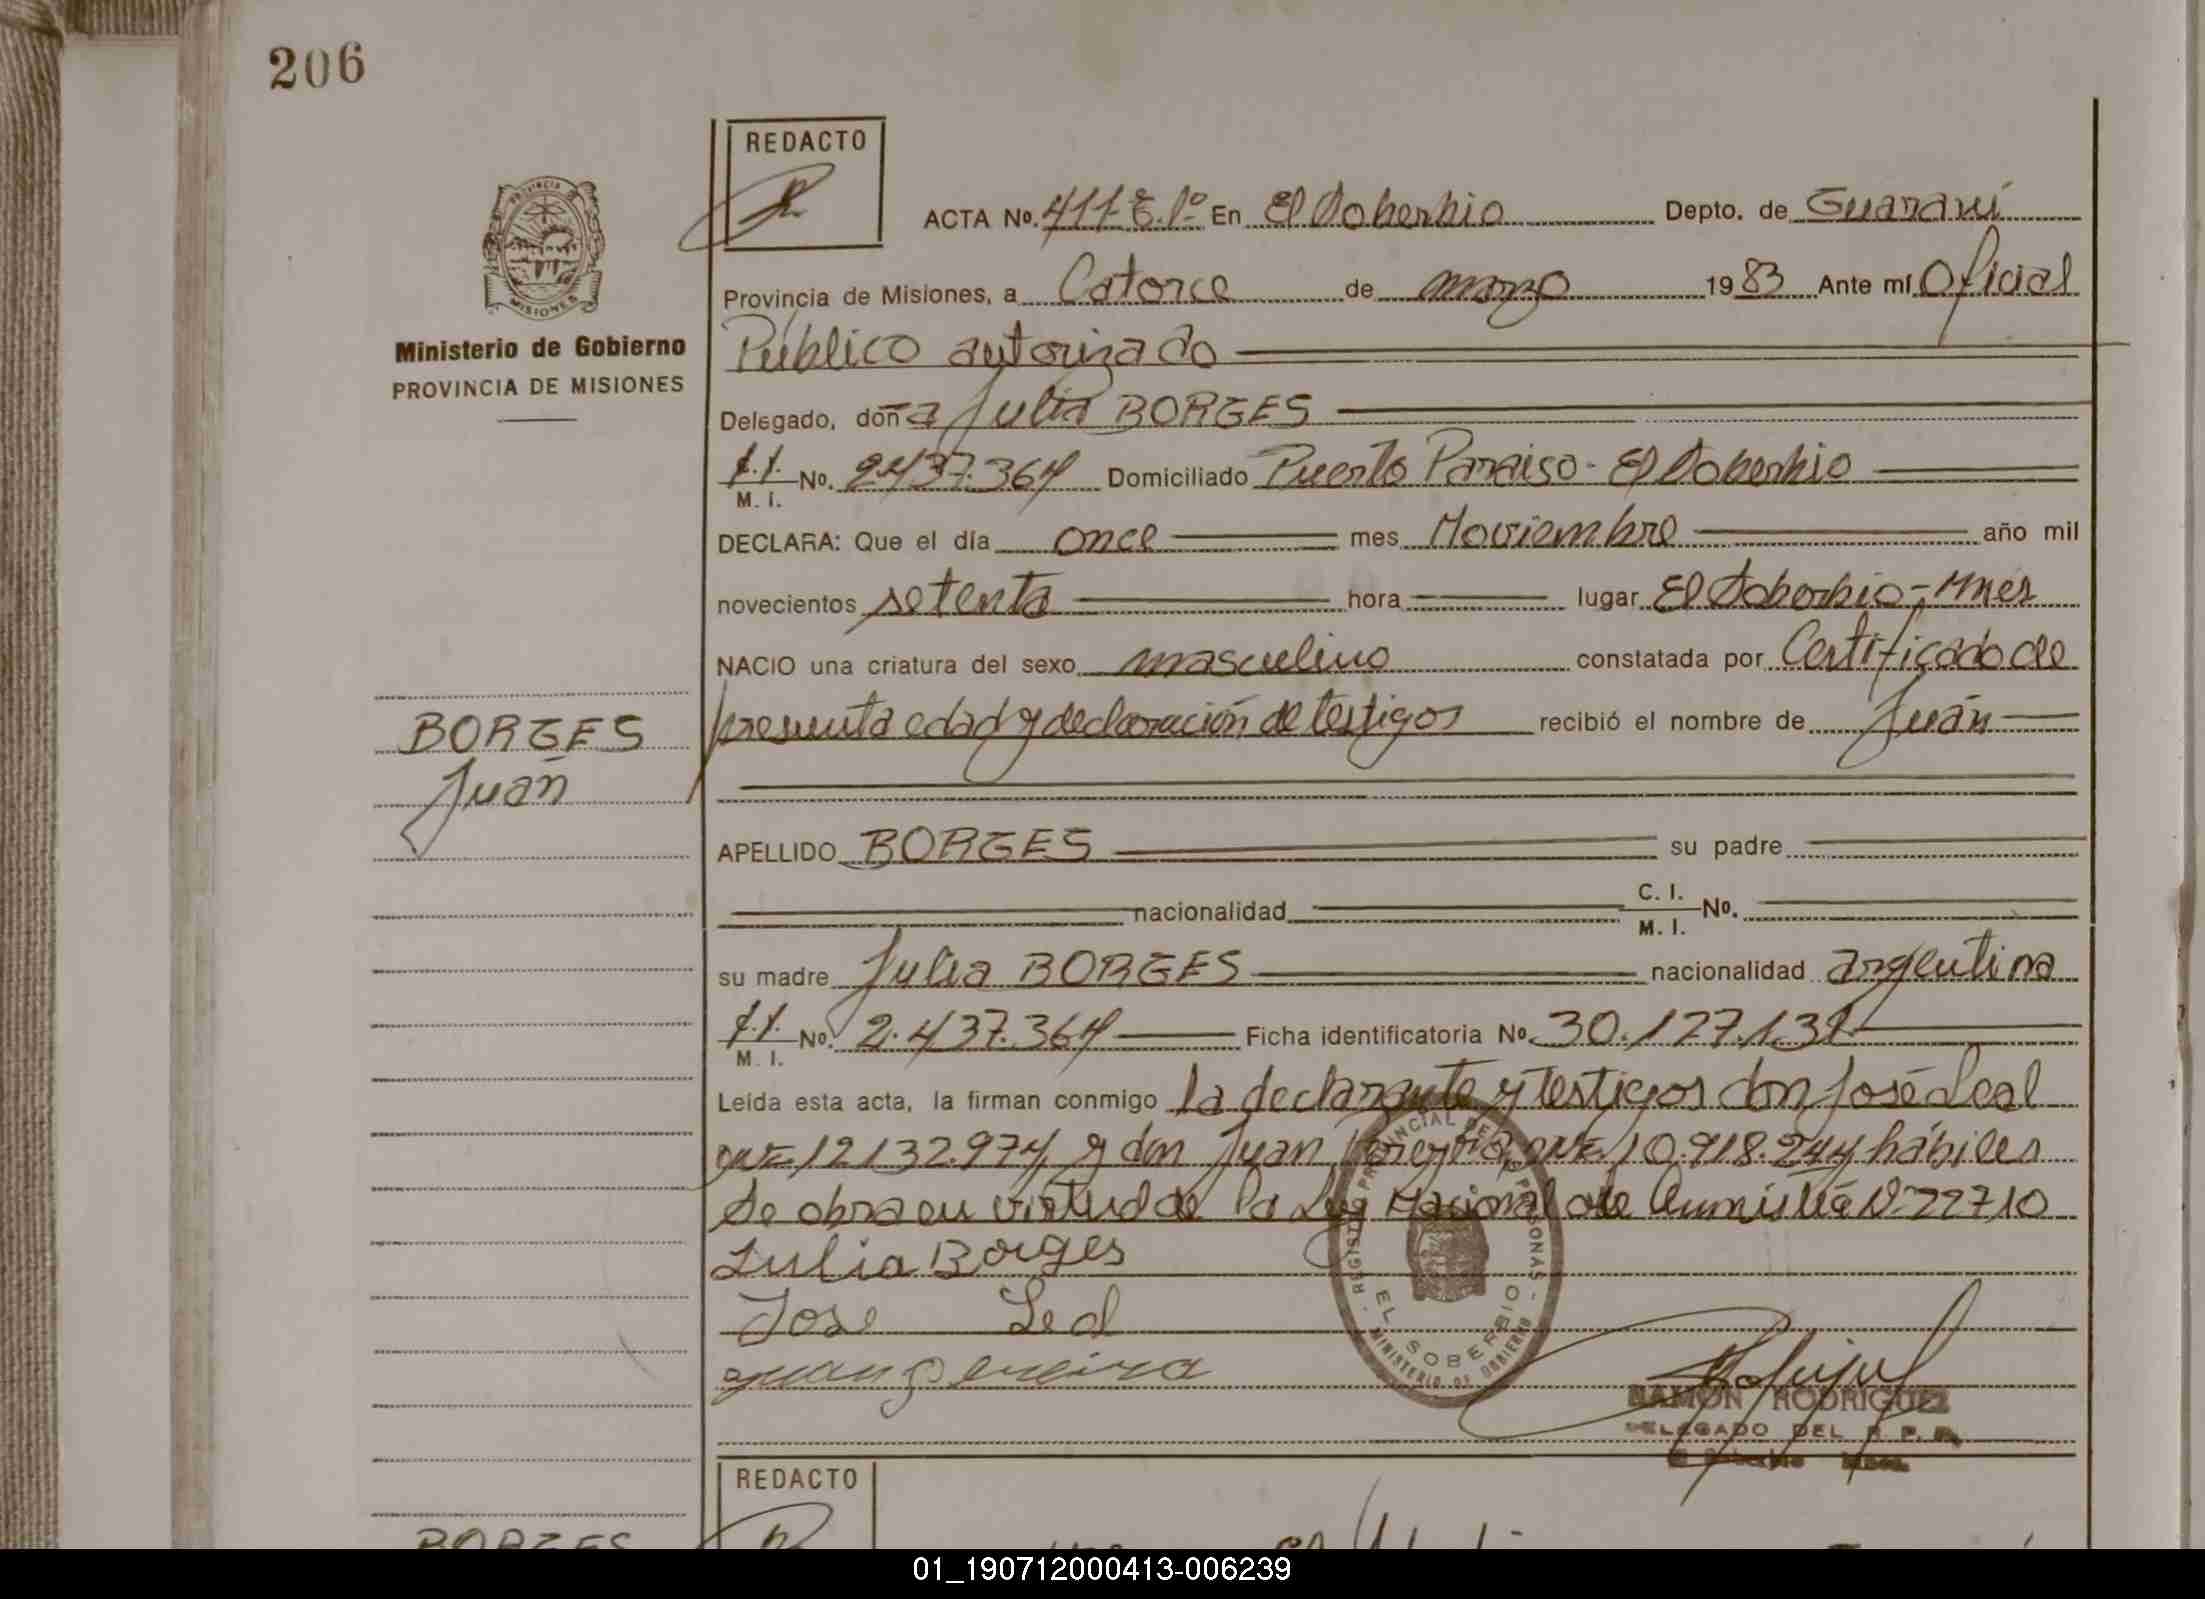 206
REDACTO
PROVINCIA
MISIONES
Ministerio de Gobierno
PROVINCIA DE MISIONES
ACTA No. 411 T. 1º En El Soberbio Depto. de Guaraní
Provincia de Misiones, a Catorce de marzo 1983 Ante mí Oficial
Público autorizado
Delegado, doña Julia BORGES
No. 2.437.364 Domiciliado Puerto Paraiso - El Soberbio
M. I.
DECLARA: Que el día once mes Noviembre año mil
novecientos setenta hora lugar El Soberbio - Mnes
NACIO una criatura del sexo masculino constatada por Certificado de
presunta edad y declaración de testigos recibió el nombre de Juán
BORGES
Juán
APELLIDO BORGES su padre
nacionalidad C. I. No.
M. I.
su madre Julia BORGES nacionalidad argentina
No. 2.437.364 Ficha identificatoria No. 30.127.131
M. I.
Leída esta acta, la firman conmigo la declarante y testigos don José Leal
12.132.974 y don Juan Pereyra, 10.918.244 hábiles
Se obra en virtud de la Ley Nacional de Amnistía Nº 22710
Julia Borges
Jose Leal
Juan Pereira
REGISTRO PROVINCIAL DE PERSONAS
EL SOBERBIO
MINISTERIO DE GOBIERNO
RAMON RODRIGUEZ
DELEGADO DEL R. P. P.
El Soberbio Mnes.
REDACTO
BORGES
01_190712000413-006239